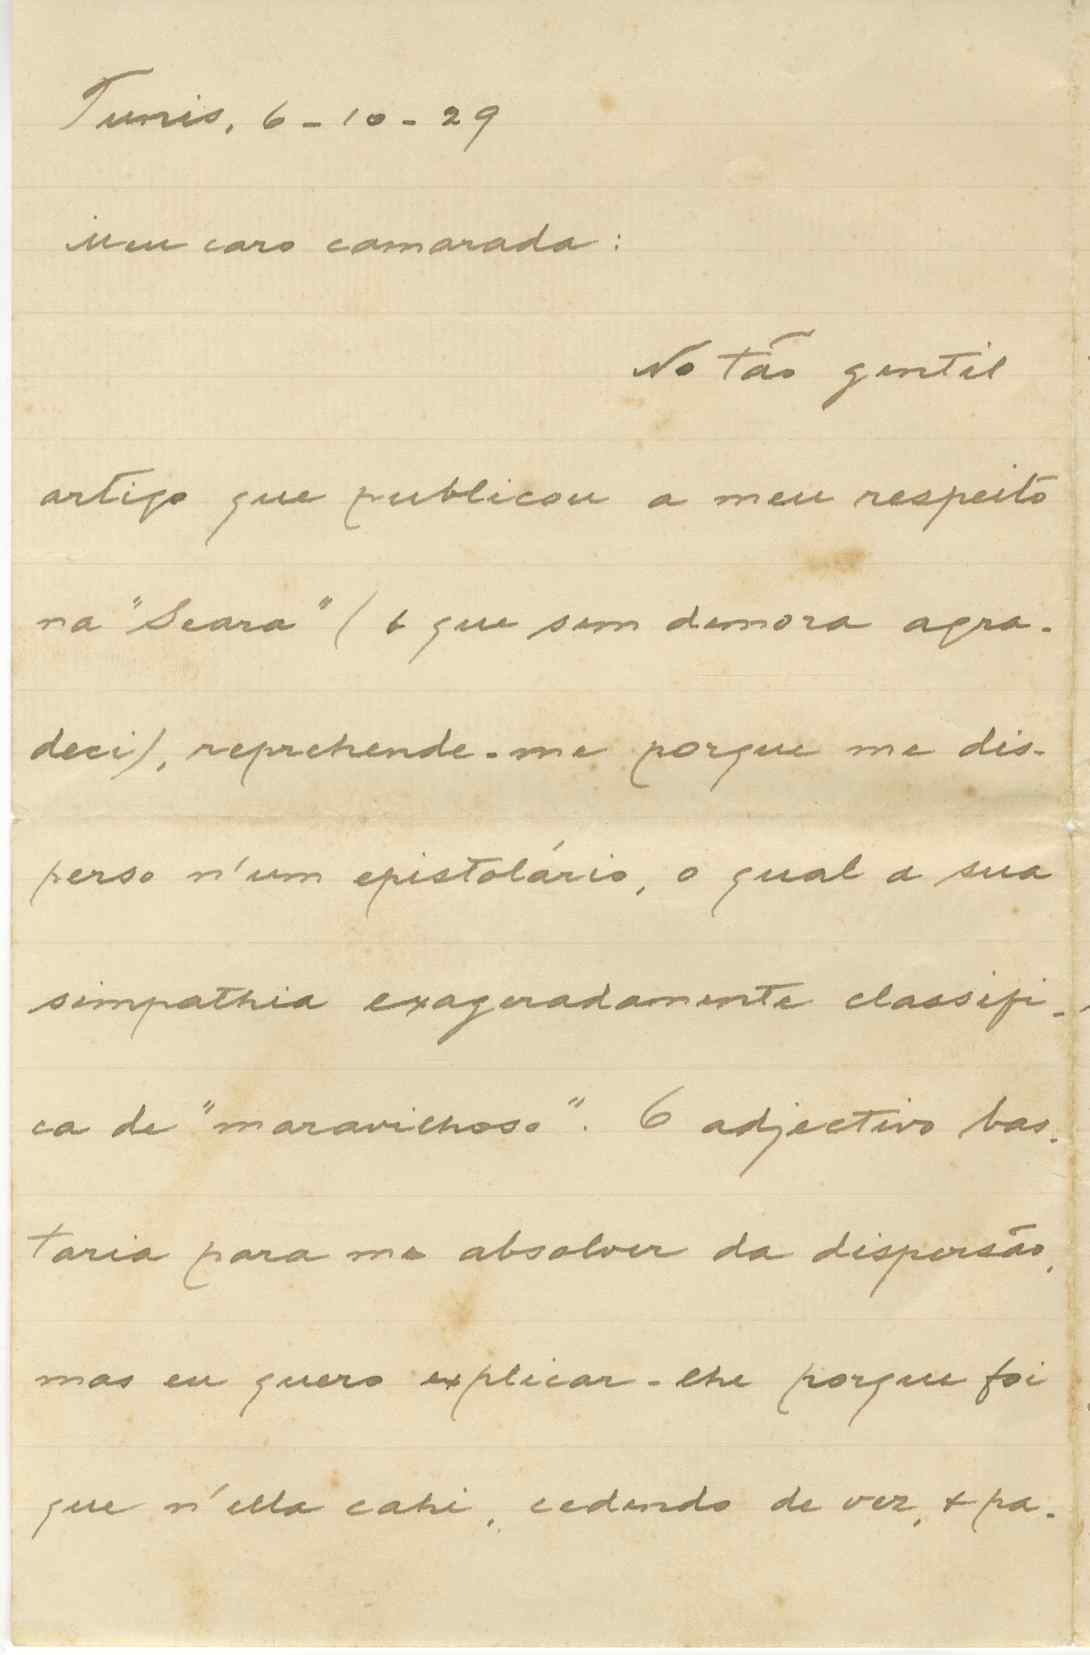 Tunis, 6-10-29
Meu caro camarada:
No tão gentil
artigo que publicou a meu respeito
na "Seara" (e que sem demora agra-
deci), reprehende-me porque me dis-
perso n'um epistolário, o qual a sua
simpathia exageradamente classifi-
ca de "maravilhoso". O adjectivo bas-
taria para me absolver da dispersão,
mas eu quero explicar-lhe porque foi
que n'ella cahi, cedendo de vez, e pa-